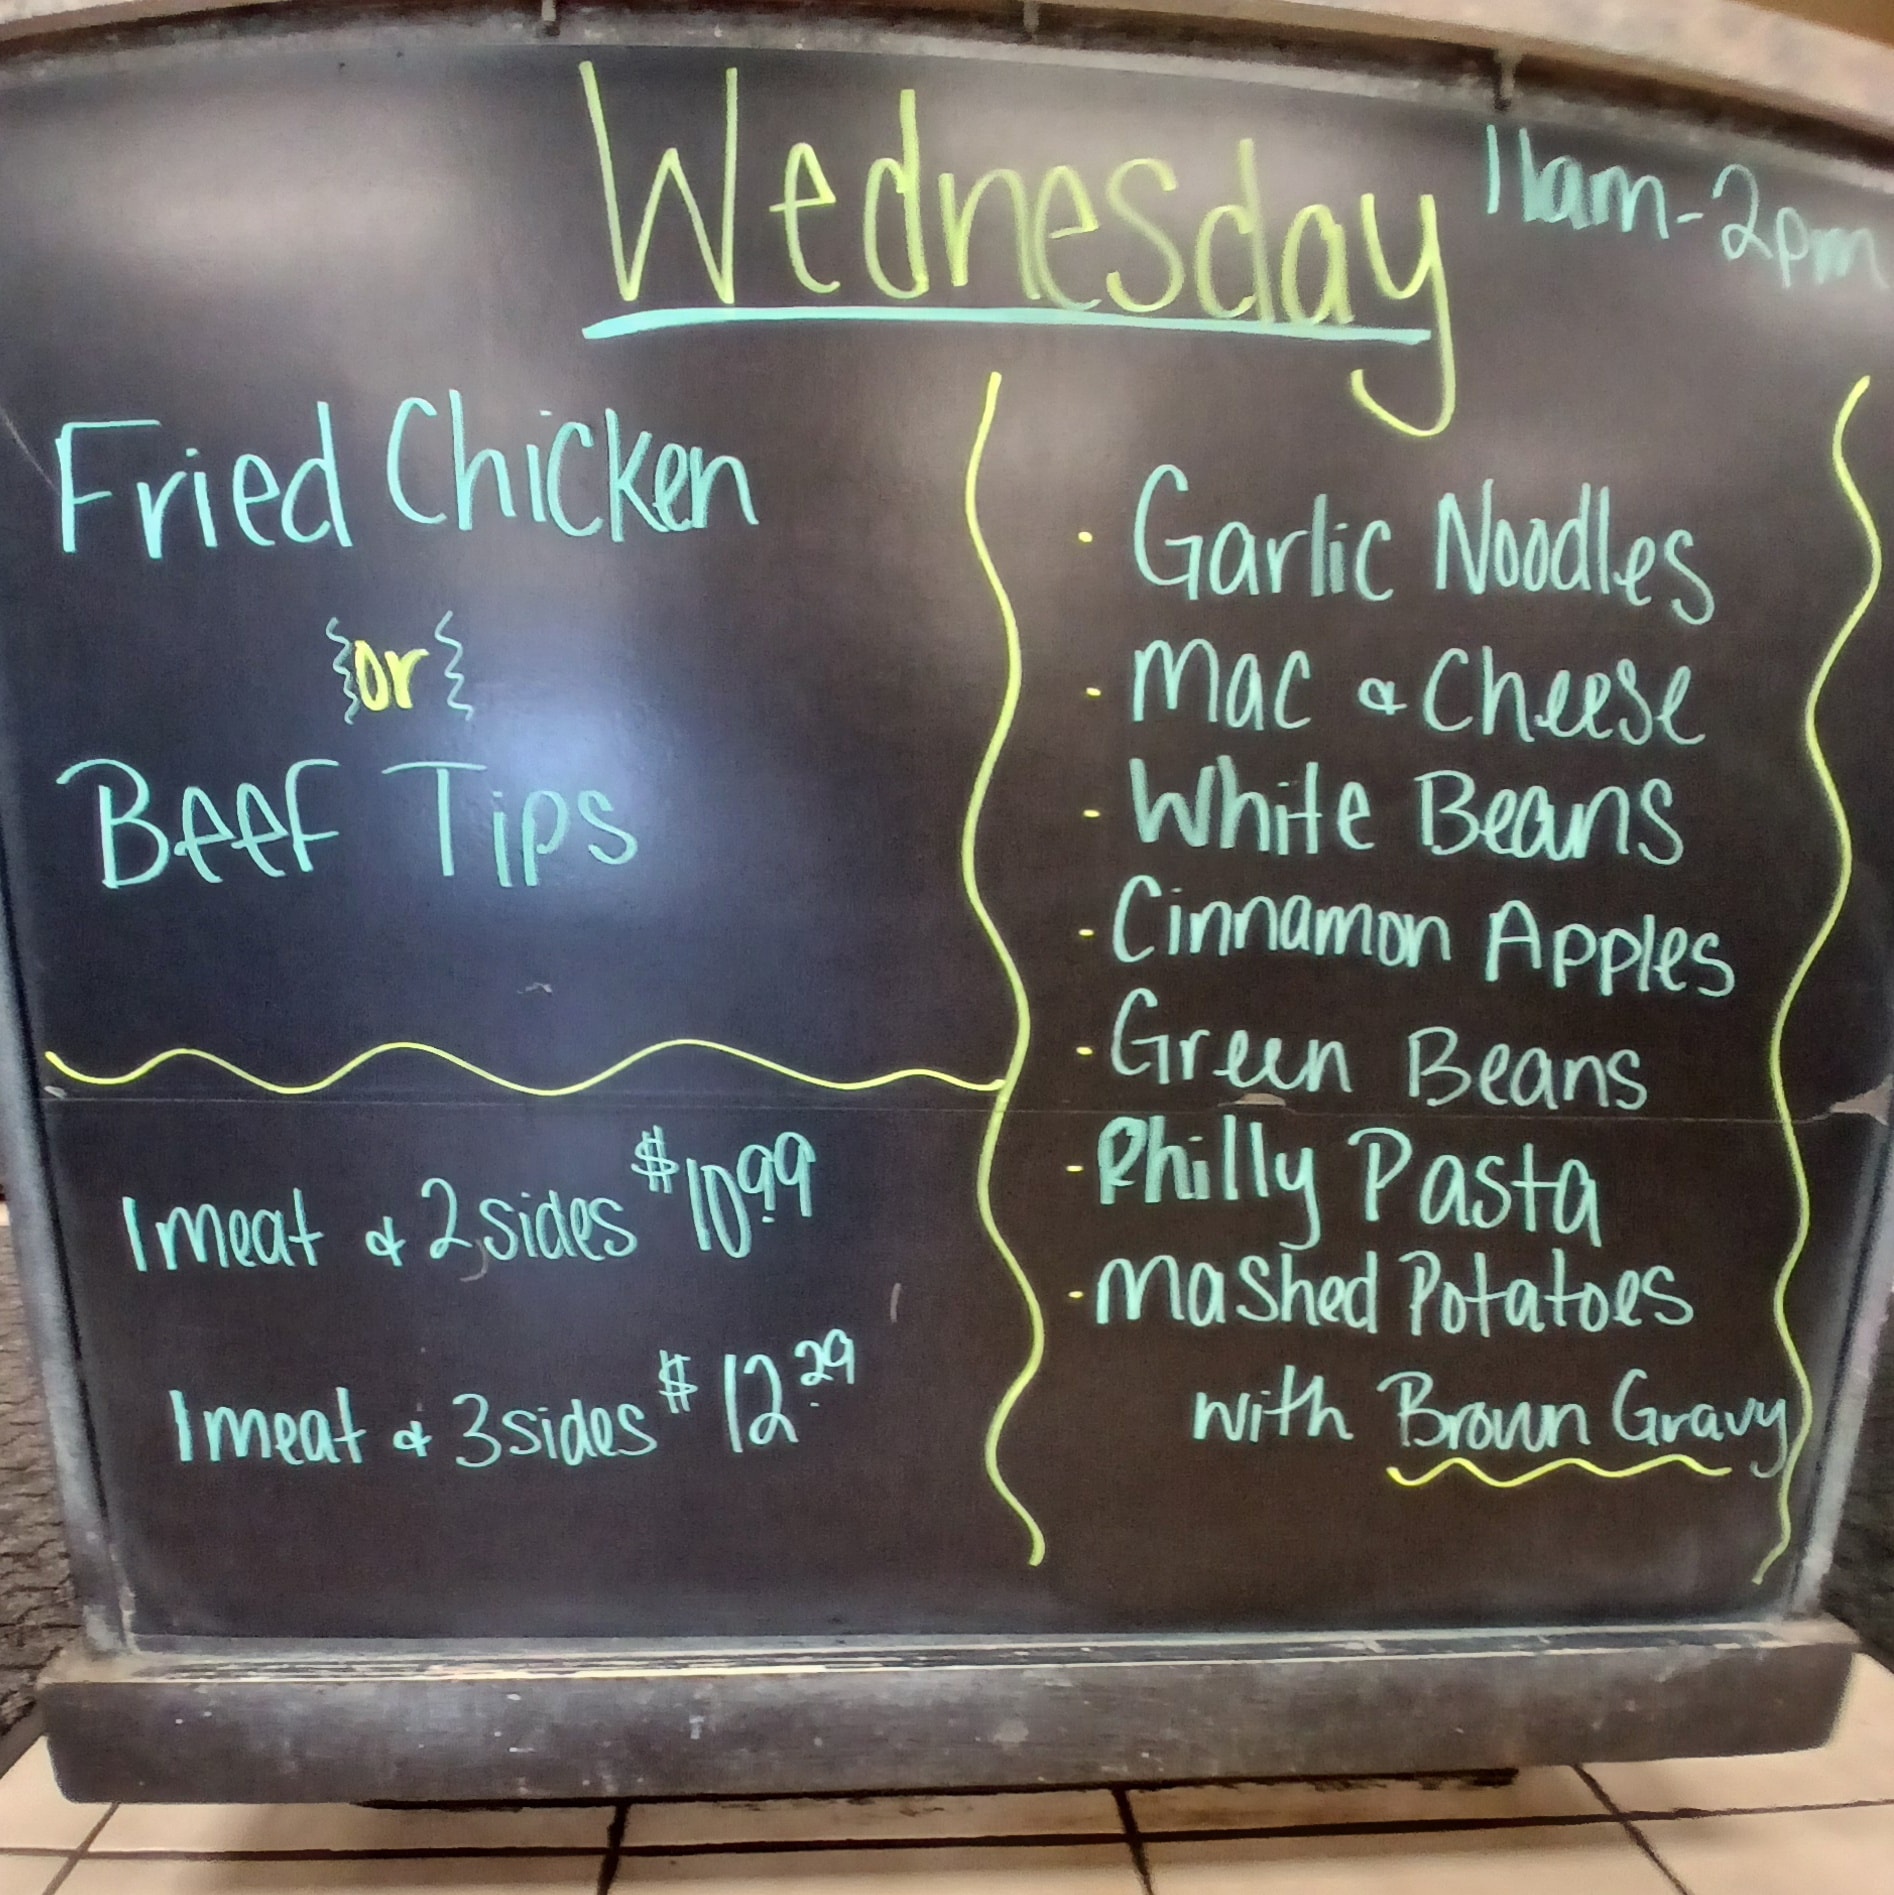 Wednesday
11am-2pm
Fried Chicken
or
Beef Tips
1 meat & 2 sides $10.99
1 meat & 3 sides $12.29
· Garlic Noodles
- Mac & Cheese
- White Beans
- Cinnamon Apples
- Green Beans
- Philly Pasta
- Mashed Potatoes
with Brown Gravy